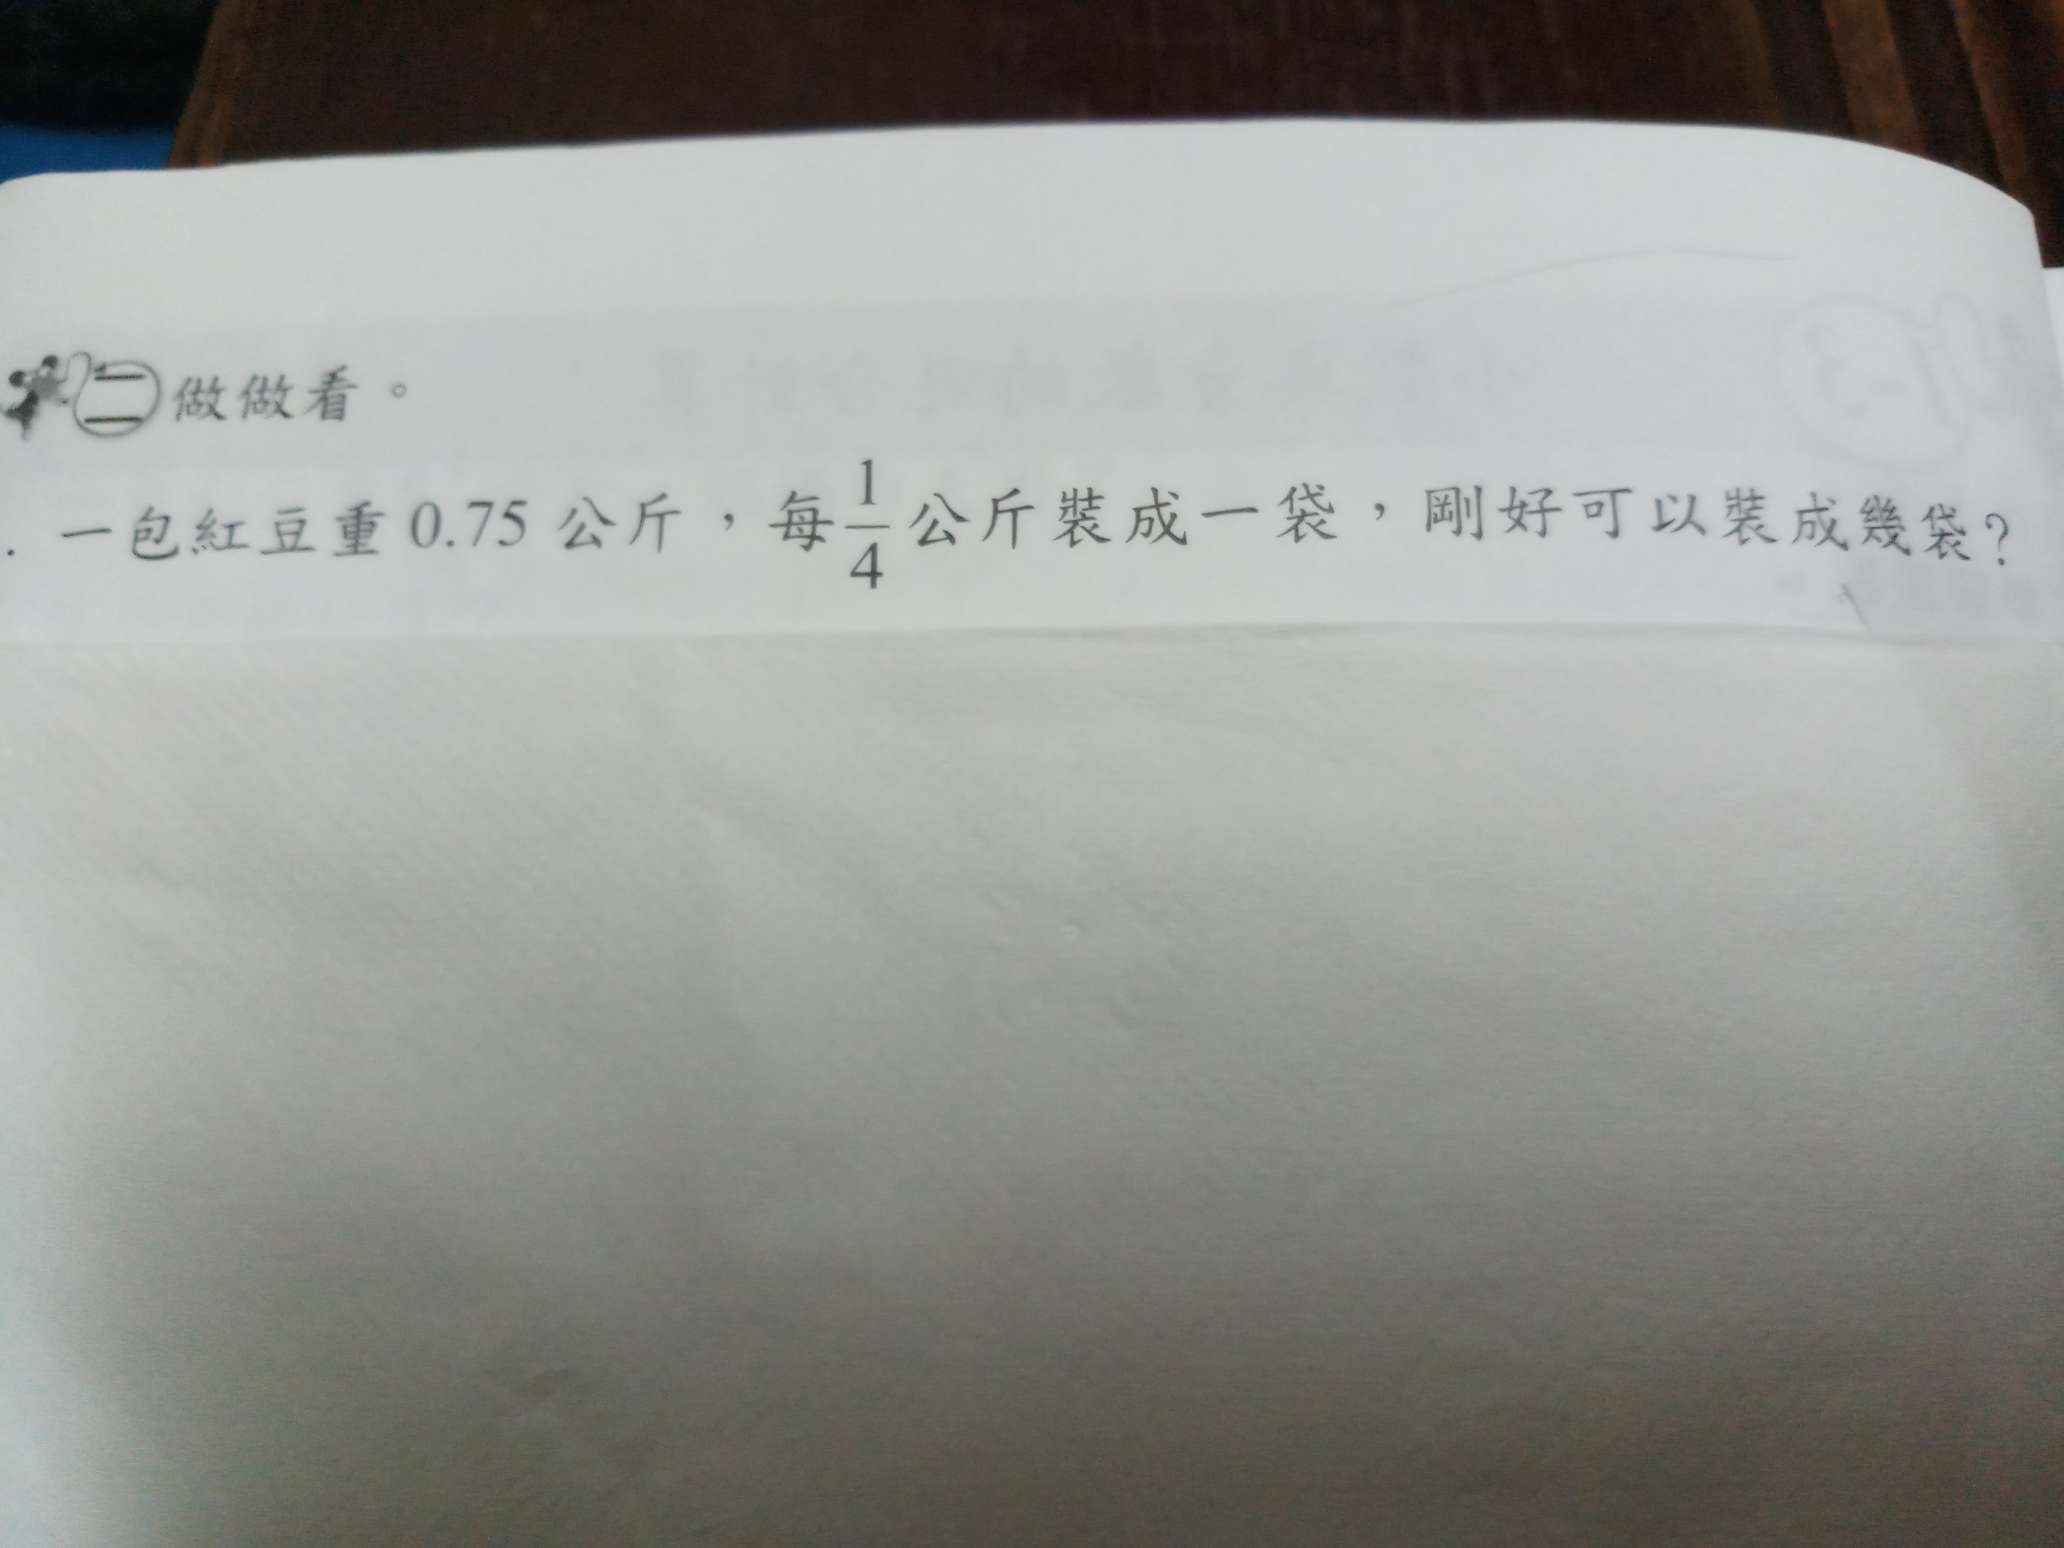 二 做做看。
. 一包紅豆重 0.75 公斤，每 1/4 公斤裝成一袋，剛好可以裝成幾袋？